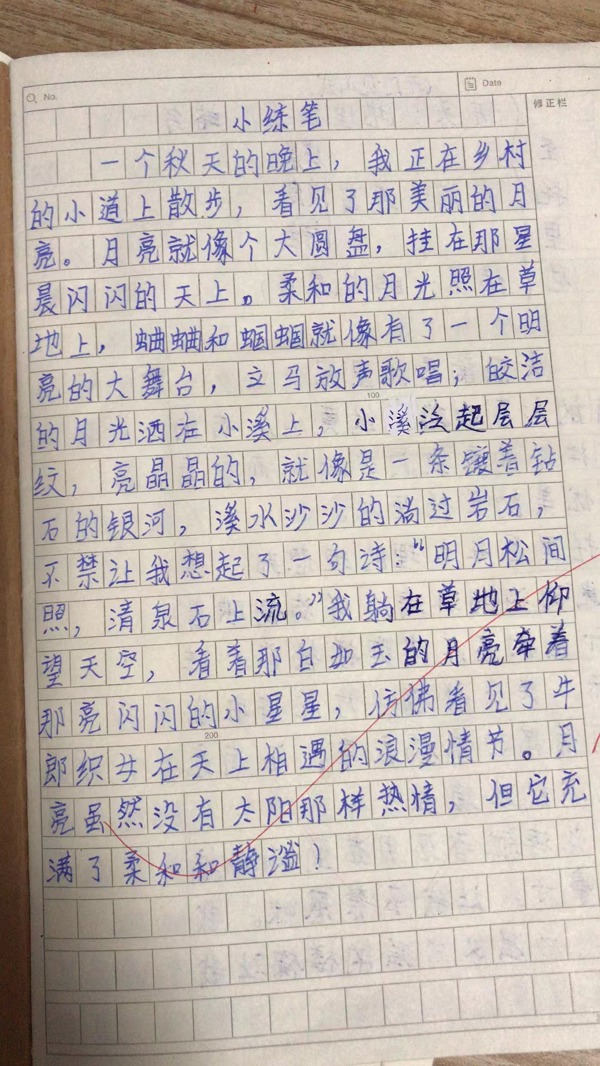 No.
Date
修正栏
小练笔
一个秋天的晚上，我正在乡村
的小道上散步，看见了那美丽的月
亮。月亮就像个大圆盘，挂在那星
晨闪闪的天上。柔和的月光照在草
地上，蛐蛐和蝈蝈就像有了一个明
亮的大舞台，立马放声歌唱；皎洁
100
的月光洒在小溪上，小溪泛起层层
纹，亮晶晶的，就像是一条镶着钻
石的银河，溪水沙沙的淌过岩石，
不禁让我想起了一句诗：“明月松间
照，清泉石上流。”我躺在草地上仰
望天空，看着那白如玉的月亮牵着
那亮闪闪的小星星，仿佛看见了牛
200
郎织女在天上相遇的浪漫情节。月
亮虽然没有太阳那样热情，但它充
满了柔和和静谧！